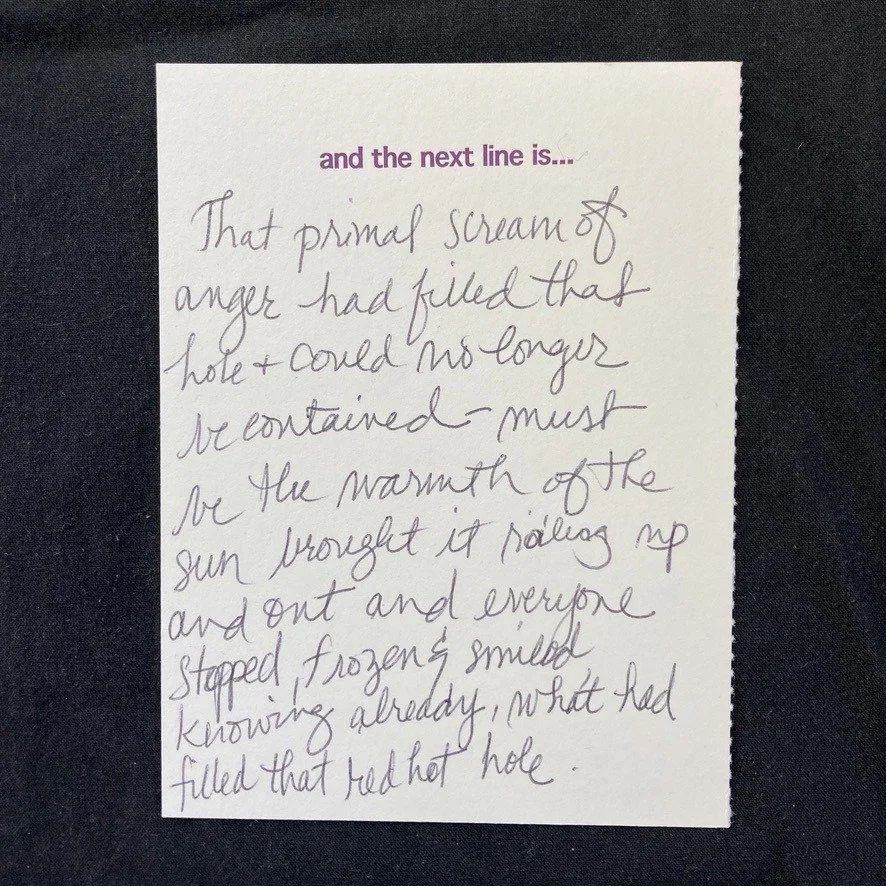 and the next line is...
That primal scream of
anger had filled that
hole + could no longer
be contained - must
be the warmth of the
sun brought it up
and out and everyone
stopped, frozen & smiled
knowing already, what had
filled that red hot hole.